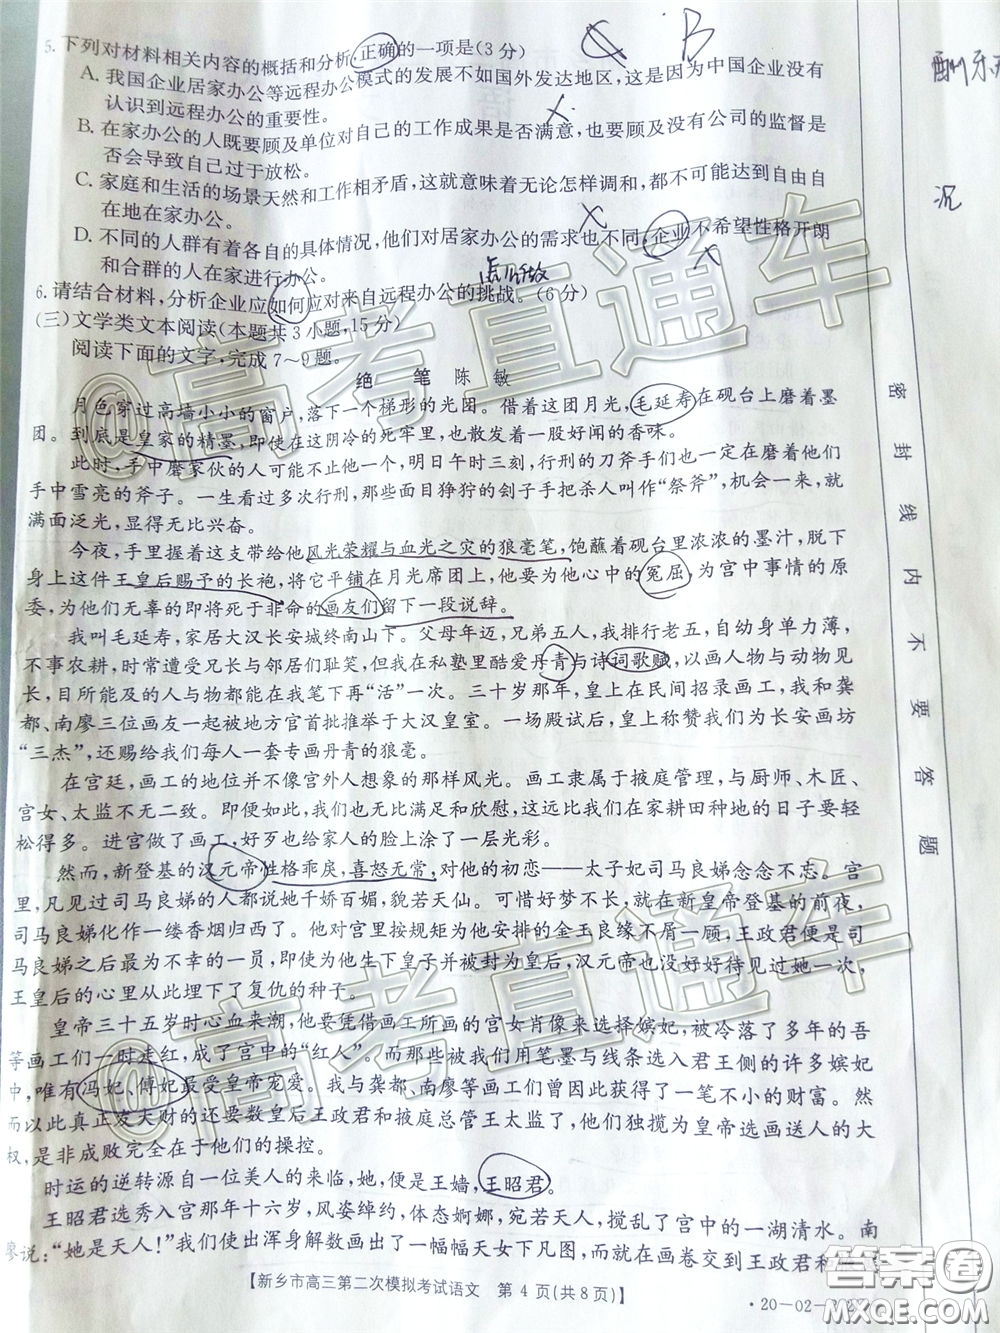 5. 下列对材料相关内容的概括和分析,正确的一项是(3分)
B
A. 我国企业居家办公等远程办公模式的发展不如国外发达地区,这是因为中国企业没有
认识到远程办公的重要性。
B. 在家办公的人既要顾及单位对自己的工作成果是否满意,也要顾及没有公司的监督是
否会导致自己过于放松。
C. 家庭和生活的场景天然和工作相矛盾,这就意味着无论怎样调和,都不可能达到自由自
在地在家办公。
D. 不同的人群有着各自的具体情况,他们对居家办公的需求也不同,企业不希望性格开朗
和合群的人在家进行办公。
6. 请结合材料,分析企业应如何应对来自远程办公的挑战。(6分)
(三)文学类文本阅读(本题共3小题,15分)
阅读下面的文字,完成7~9题。
绝 笔 陈 敏
月色穿过高墙小小的窗户,落下一个梯形的光团。借着这团月光,毛延寿在砚台上磨着墨
团。到底是皇家的精墨,即使在这阴冷的死牢里,也散发着一股好闻的香味。
此时,手中磨家伙的人可能不止他一个,明日午时三刻,行刑的刀斧手们也一定在磨着他们
手中雪亮的斧子。一生看过多次行刑,那些面目狰狞的刽子手把杀人叫作“祭斧”,机会一来,就
满面泛光,显得无比兴奋。
今夜,手里握着这支带给他风光荣耀与血光之灾的狼毫笔,饱蘸着砚台里浓浓的墨汁,脱下
身上这件王皇后赐予的长袍,将它平铺在月光席团上,他要为他心中的冤屈,为宫中事情的原
委,为他们无辜的即将死于非命的画友们留下一段说辞。
我叫毛延寿,家居大汉长安城终南山下。父母年迈,兄弟五人,我排行老五,自幼身单力薄,
不事农耕,时常遭受兄长与邻居们耻笑,但我在私塾里酷爱丹青与诗词歌赋,以画人物与动物见
长,目所能及的人与物都能在我笔下再“活”一次。三十岁那年,皇上在民间招录画工,我和龚
都、南廖三位画友一起被地方官首批推举于大汉皇室。一场殿试后,皇上称赞我们为长安画坊
“三杰”,还赐给我们每人一套专画丹青的狼毫。
在宫廷,画工的地位并不像宫外人想象的那样风光。画工隶属于掖庭管理,与厨师、木匠、
宫女、太监不无二致。即便如此,我们也无比满足和欣慰,这远比我们在家耕田种地的日子要轻
松得多。进宫做了画工,好歹也给家人的脸上涂了一层光彩。
然而,新登基的汉元帝性格乖戾,喜怒无常,对他的初恋——太子妃司马良娣念念不忘。宫
里,凡见过司马良娣的人都说她千娇百媚,貌若天仙。可惜好梦不长,就在新皇帝登基的前夜,
司马良娣化作一缕香烟归西了。他对宫里按规矩为他安排的金玉良缘不屑一顾,王政君便是司
马良娣之后最为不幸的一员,即使为他生下皇子并被封为皇后,汉元帝也没好好待见过她一次,
王皇后的心里从此埋下了复仇的种子。
皇帝三十五岁时心血来潮,他要凭借画工所画的宫女肖像来选择嫔妃,被冷落了多年的吾
等画工们一时走红,成了宫中的“红人”。而那些被我们用笔墨与线条选入君王侧的许多嫔妃
中,唯有冯妃、傅妃最受皇帝宠爱。我与龚都、南廖等画工们曾因此获得了一笔不小的财富。然
而以此真正发天财的还要数皇后王政君和掖庭总管王太监了,他们独揽为皇帝选画送人的大
权,是非成败完全在于他们的操控。
时运的逆转源自一位美人的来临,她,便是王嫱,王昭君。
王昭君选秀入宫那年十六岁,风姿绰约,体态婀娜,宛若天人,搅乱了宫中的一湖清水。南
廖说:“她是天人!”我们使出浑身解数画出了一幅幅天女下凡图,而在画卷交到王政君和
【新乡市高三第二次模拟考试语文 第 4 页(共 8 页)】
·20-02-
密 封 线 内 不 要 答 题
@高考直通车
@高考直通车
答案圈